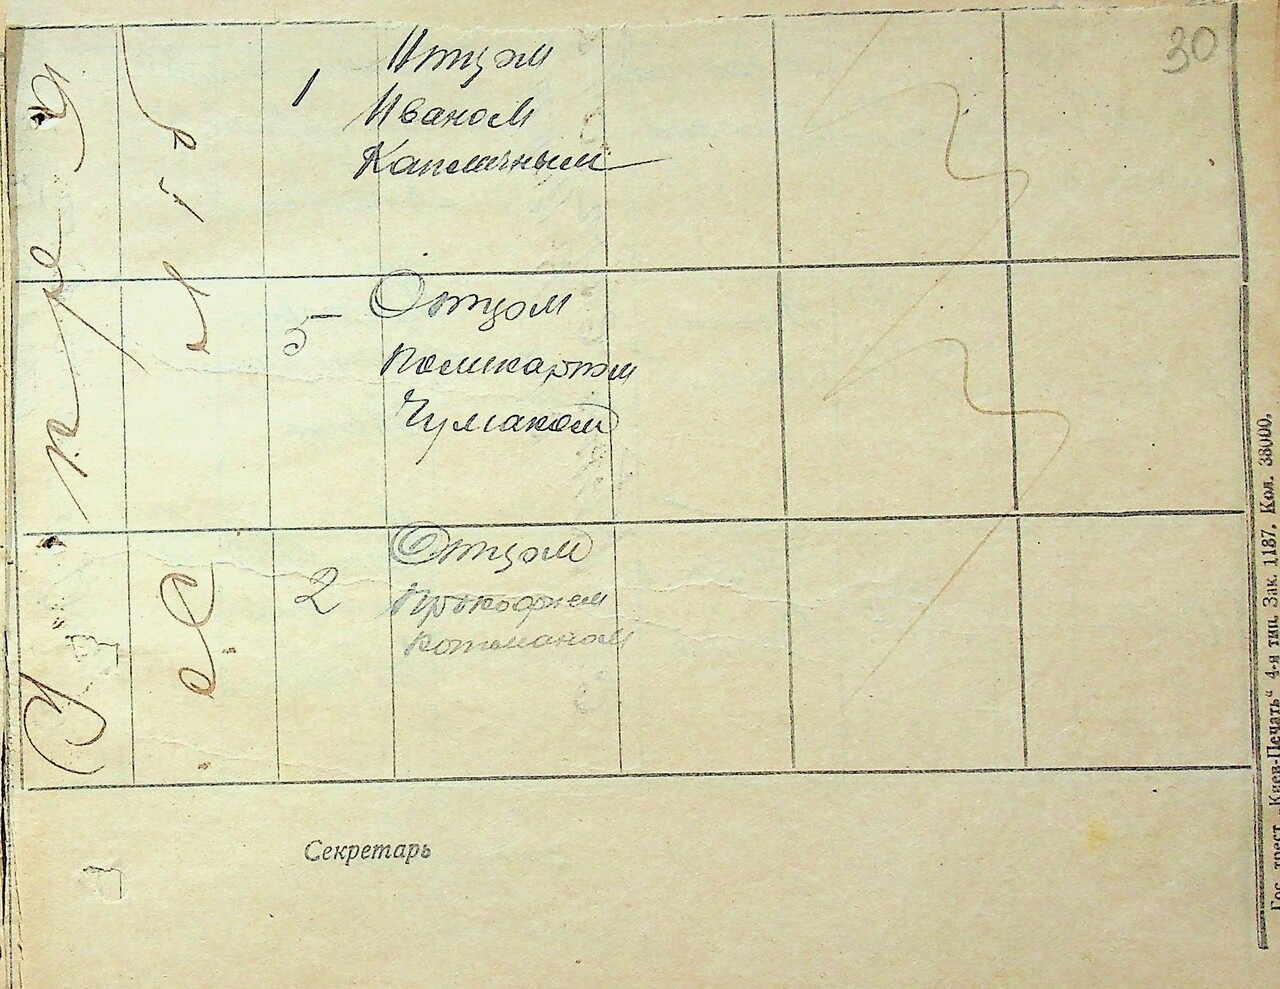 30
1
Отцом
Иваном
Капличным
5
Отцом
Поликарпом
Чумаком
2
Отцом
Прокофием
Котманом
Секретарь
Гос. трест „Киев-Печать“ 4-я тип. Зак. 1187. Кол. 38000.